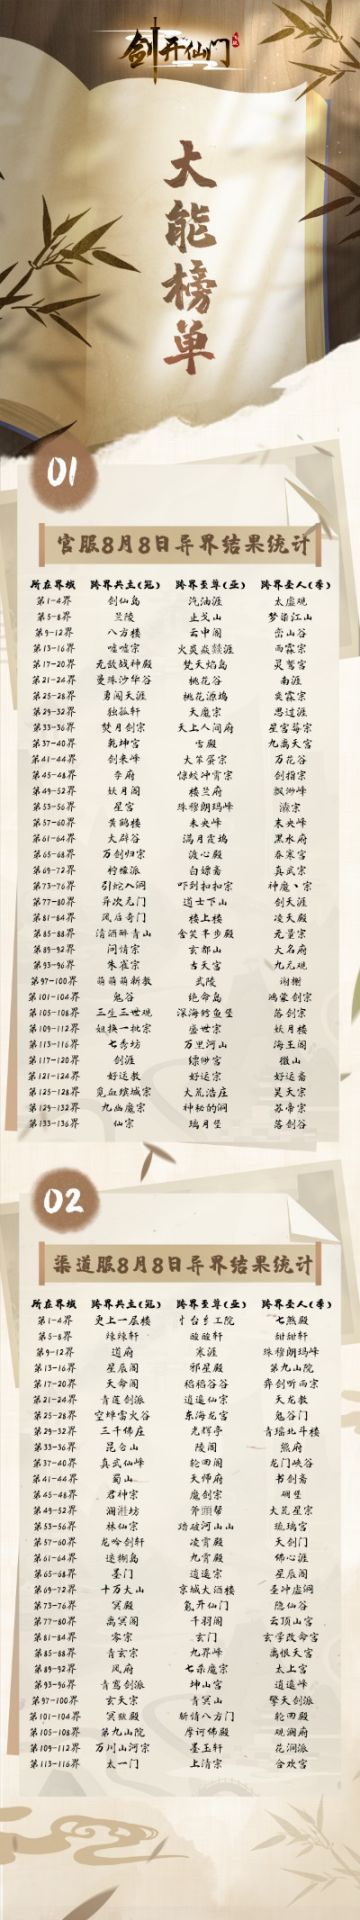 剑开仙门
大能榜单
01
官服8月8日异界结果统计
所在界域 跨界共主(冠) 跨界至尊(亚) 跨界圣人(季)
第1-4界 剑仙岛 汽油涯 太虚观
第5-8界 兰陵 止戈山 梦萦江山
第9-12界 八方楼 云中阁 峦山谷
第13-16界 嘘嘘宗 火炎焱燚涯 雨霖宗
第17-20界 无敌战神殿 梵天焰岛 灵鹫宫
第21-24界 曼珠沙华谷 桃花谷 南涯
第25-28界 勇闯天涯 桃花源坞 奕霖宗
第29-32界 独孤轩 天魔宗 思过涯
第33-36界 焚月剑宗 天上人间府 星宫莓宗
第37-40界 乾坤宫 雪殿 九离天宫
第41-44界 剑来峰 大笨蛋宗 万花谷
第45-48界 李府 惊蛟冲霄宗 剑指宗
第49-52界 妖月阁 楼兰府 飘渺峰
第53-56界 星宫 珠穆朗玛峰
第57-60界 黄鹤楼 未央峰 未央峰
第61-64界 大辟谷 满月霞坞 黑水府
第65-68界 万剑归宗 渡心殿 春寒宫
第69-72界 柠檬派 白嫖斋 真武宗
第73-76界 引蛇入洞 吓到扣扣宗 神魔丶宗
第77-80界 异次元门 道士下山 剑天涯
第81-84界 风后奇门 楼上楼 凌天殿
第85-88界 清酒醉青山 含笑半步殿 元量宗
第89-92界 问情宗 玄都山 大名府
第93-96界 朱雀宗 古天宫 九元观
第97-100界 萌萌萌新教 武陵 谢榭
第101-104界 鬼谷 绝命岛 鸿蒙剑宗
第105-108界 三生三世观 深海鳕鱼堡 落剑宗
第109-112界 姐换一批宗 盛世宗 妖月楼
第113-116界 七秀坊 万里河山 海王阁
第117-120界 剑涯 缥缈宫 微山
第121-124界 好运教 好运宗 好运斋
第125-128界 觅血缤城宗 大荒浩庄 昊天宗
第129-132界 九幽魔宗 神秘的洞 苏帝宗
第133-136界 仙宗 璃月堡 落剑谷
02
渠道服8月8日异界结果统计
所在界域 跨界共主(冠) 跨界至尊(亚) 跨界圣人(季)
第1-4界 更上一层楼 七煞殿
第5-8界 辣辣轩 酸酸轩 甜甜轩
第9-12界 道府 寒涯 珠穆朗玛峰
第13-16界 星辰阁 邪星殿 第九山院
第17-20界 天命阁 稻稻谷谷 弈剑听雨宗
第21-24界 青莲剑派 逍遥仙宗 天龙教
第25-28界 空蝉雷火谷 东海龙宫 鬼谷门
第29-32界 三千佛庄 光辉亭 青瑶北斗楼
第33-36界 昆仑山 陵阁 熊府
第37-40界 真武仙峰 轮回阁 龙门峡谷
第41-44界 蜀山 天师府 书剑斋
第45-48界 君神宗 魔剑宗 碉堡
第49-52界 澜湘坊 斧头帮 大荒星宗
第53-56界 林仙宗 踏破河山山 琉璃宫
第57-60界 龙吟剑轩 凌霄殿 天剑门
第61-64界 迷糊岛 九霄殿 佛心涯
第65-68界 墨门 逍遥宗 星辰阁
第69-72界 十万大山 京城大酒楼 圣冲虚洞
第73-76界 冥殿 氪开仙门 隐仙谷
第77-80界 离冥阁 千羽阁 云顶山宫
第81-84界 零宗 玄门 玄学改命宫
第85-88界 青玄宗 九界峰 离恨天宫
第89-92界 风府 七杀魔宗 太上宫
第93-96界 青鸾剑派 坤山宫 逍遥峰
第97-100界 玄天宗 青冥山 擎天剑派
第101-104界 冥狱殿 斩情八方门 轮回殿
第105-108界 第九山院 摩诃佛殿 观澜府
第109-112界 万川山河宗 墨玉轩 花涧派
第113-116界 太一门 上清宗 合欢宫